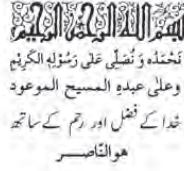 بسم الله الرحمن الرحيم
نَحْمَدُہٗ وَ نُصَلِّیْ عَلٰی رَسُوْلِہِ الْکَرِیْمِ
وعلیٰ عبدہِ المسیح الموعود
خدا کے فضل اور رحم کے ساتھ
ھوالنّاصــر